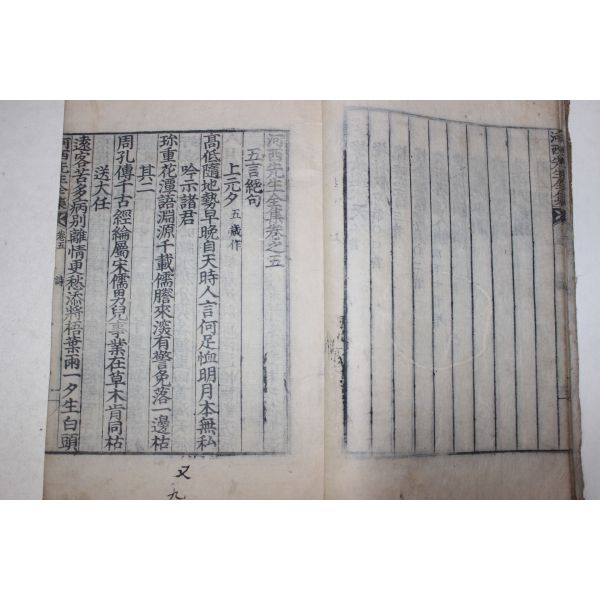 河西先生全集
河西先生全集卷之五
五言絶句
上元夕 五歲作
高低隨地勢早晚自天時人言何足恤明月本無私
吟示諸君
珎重花潭語淵源千載儒賸來深有警免落一邊枯
其二
周孔傳千古經綸屬宋儒男兒事業在草木肯同枯
送大任
遠客苦多病別離情更愁添將梧葉雨一夕生白頭
河西先生全集 卷五 詩
又九